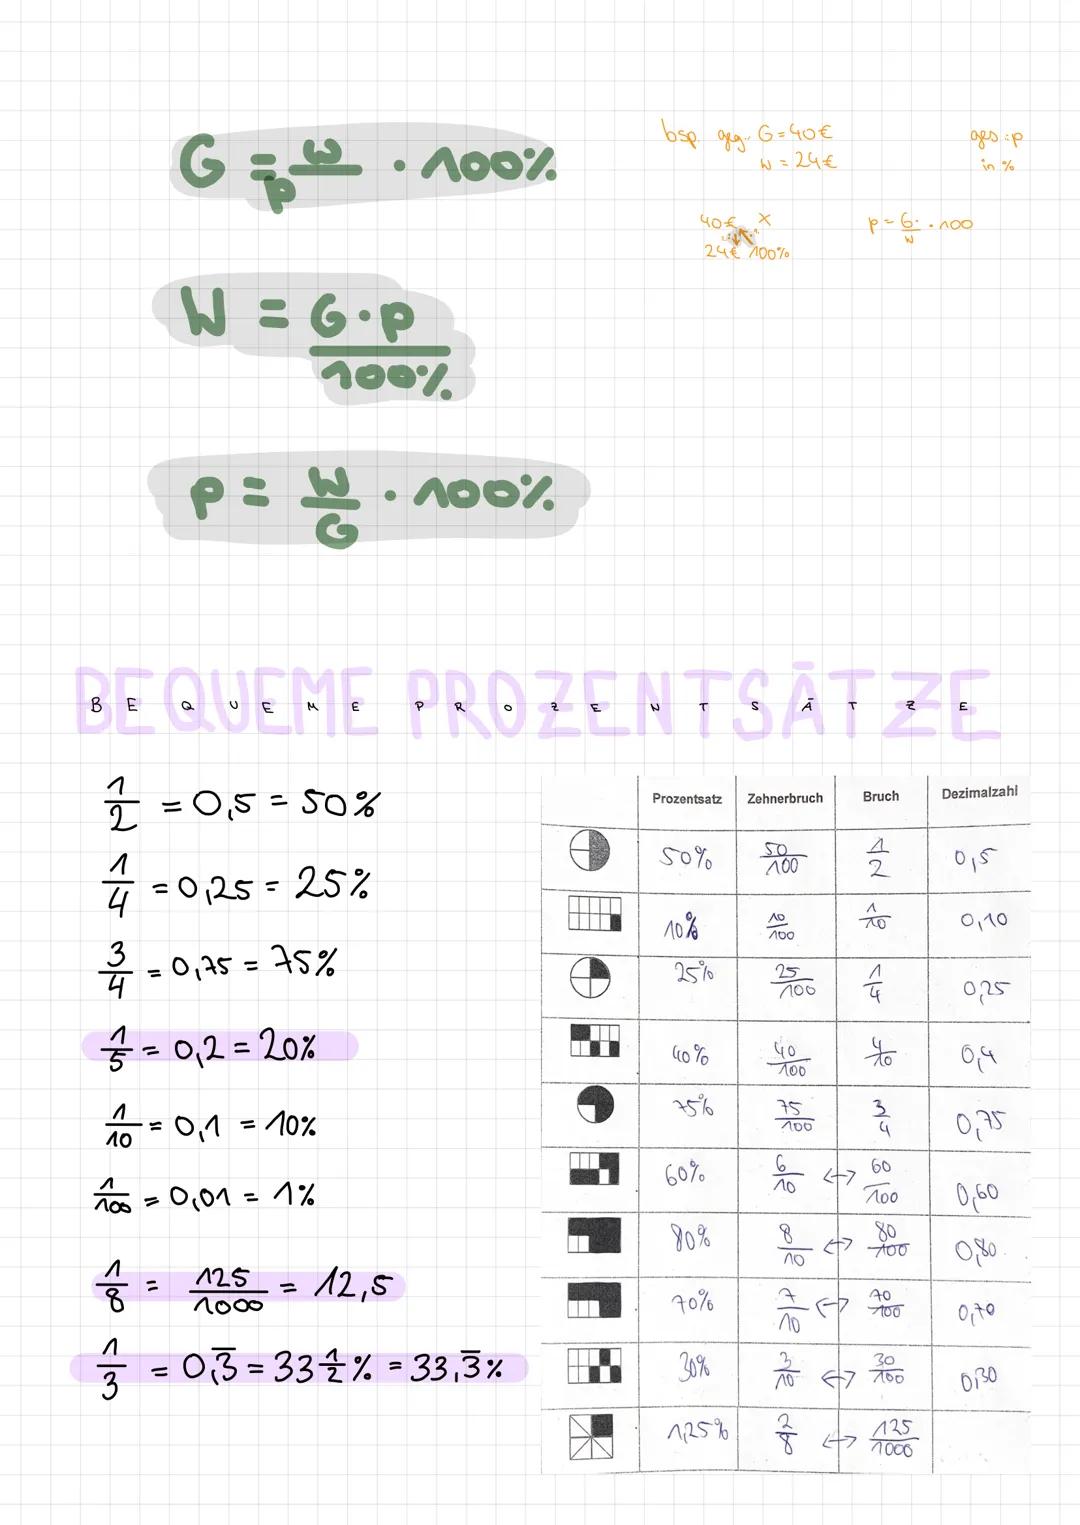 G = w/p · 100%
bsp. geg. G = 40€
w = 24€
ges.: p
in %
40€ x
24€ 100%
p = G/w · 100
W = G·p/100%
p = W/G · 100%
BEQUEME PROZENTSÄTZE
BEQUEME PROZENTSÄTZE
1/2 = 0,5 = 50%
1/4 = 0,25 = 25%
3/4 = 0,75 = 75%
1/5 = 0,2 = 20%
1/10 = 0,1 = 10%
1/100 = 0,01 = 1%
1/8 = 125/1000 = 12,5
1/3 = 0,3̅ = 33 1/2 % = 33,3̅%
Prozentsatz Zehnerbruch Bruch Dezimalzahl
50% 50/100 1/2 0,5
10% 10/100 1/10 0,10
25% 25/100 1/4 0,25
40% 40/100 4/10 0,4
75% 75/100 3/4 0,75
60% 6/10 ↔ 60/100 0,60
80% 8/10 ↔ 80/100 0,80
70% 7/10 ↔ 70/100 0,70
30% 3/10 ↔ 30/100 0,30
1,25% 2/8 ↔ 125/1000